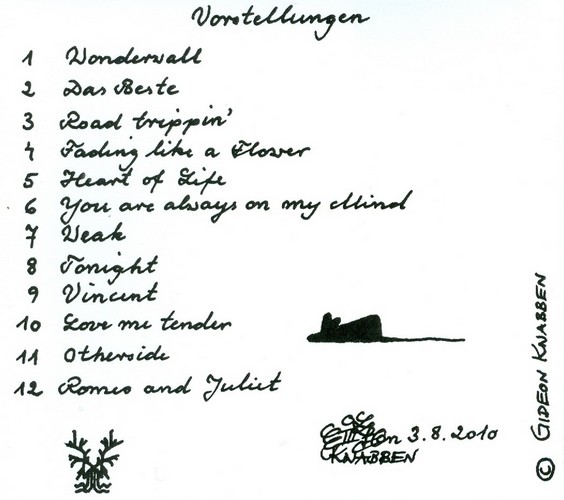 Vorstellungen
1 Wonderwall
2 Das Beste
3 Road trippin'
4 Fading like a Flower
5 Heart of Life
6 You are always on my Mind
7 Weak
8 Tonight
9 Vincent
10 Love me tender
11 Otherside
12 Romeo and Juliet
3.8.2010
KNABBEN
© GIDEON KNABBEN